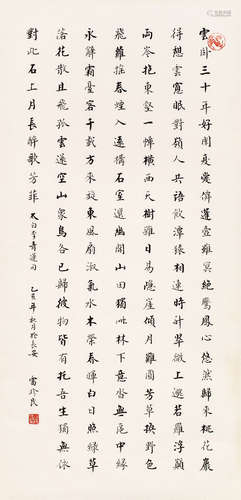 雲卧三十年好閑復愛僊蓬壺雖冥絕鸞鳳心悠然歸來桃花巖
得憩雲窗眠對嶺人共語飲潭猿相連時昇翠微上邈若羅浮巔
兩岑抱東壑一嶂橫西天樹雜日易隱崖傾月難圓芳草換野色
飛蘿搖春煙入遠構石室選幽開山田獨此林下意杳無區中緣
永辭霜臺客千載方來旋東風扇淑氣水木榮春暉白日照綠草
落花散且飛孤雲還空山衆鳥各已歸彼物皆有託吾生獨無依
對此石上月長醉歌芳菲 太白李青蓮詞 乙亥年秋月於長安 雷珍民